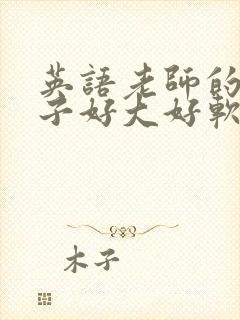 英語老師的
子好大好軟
木子